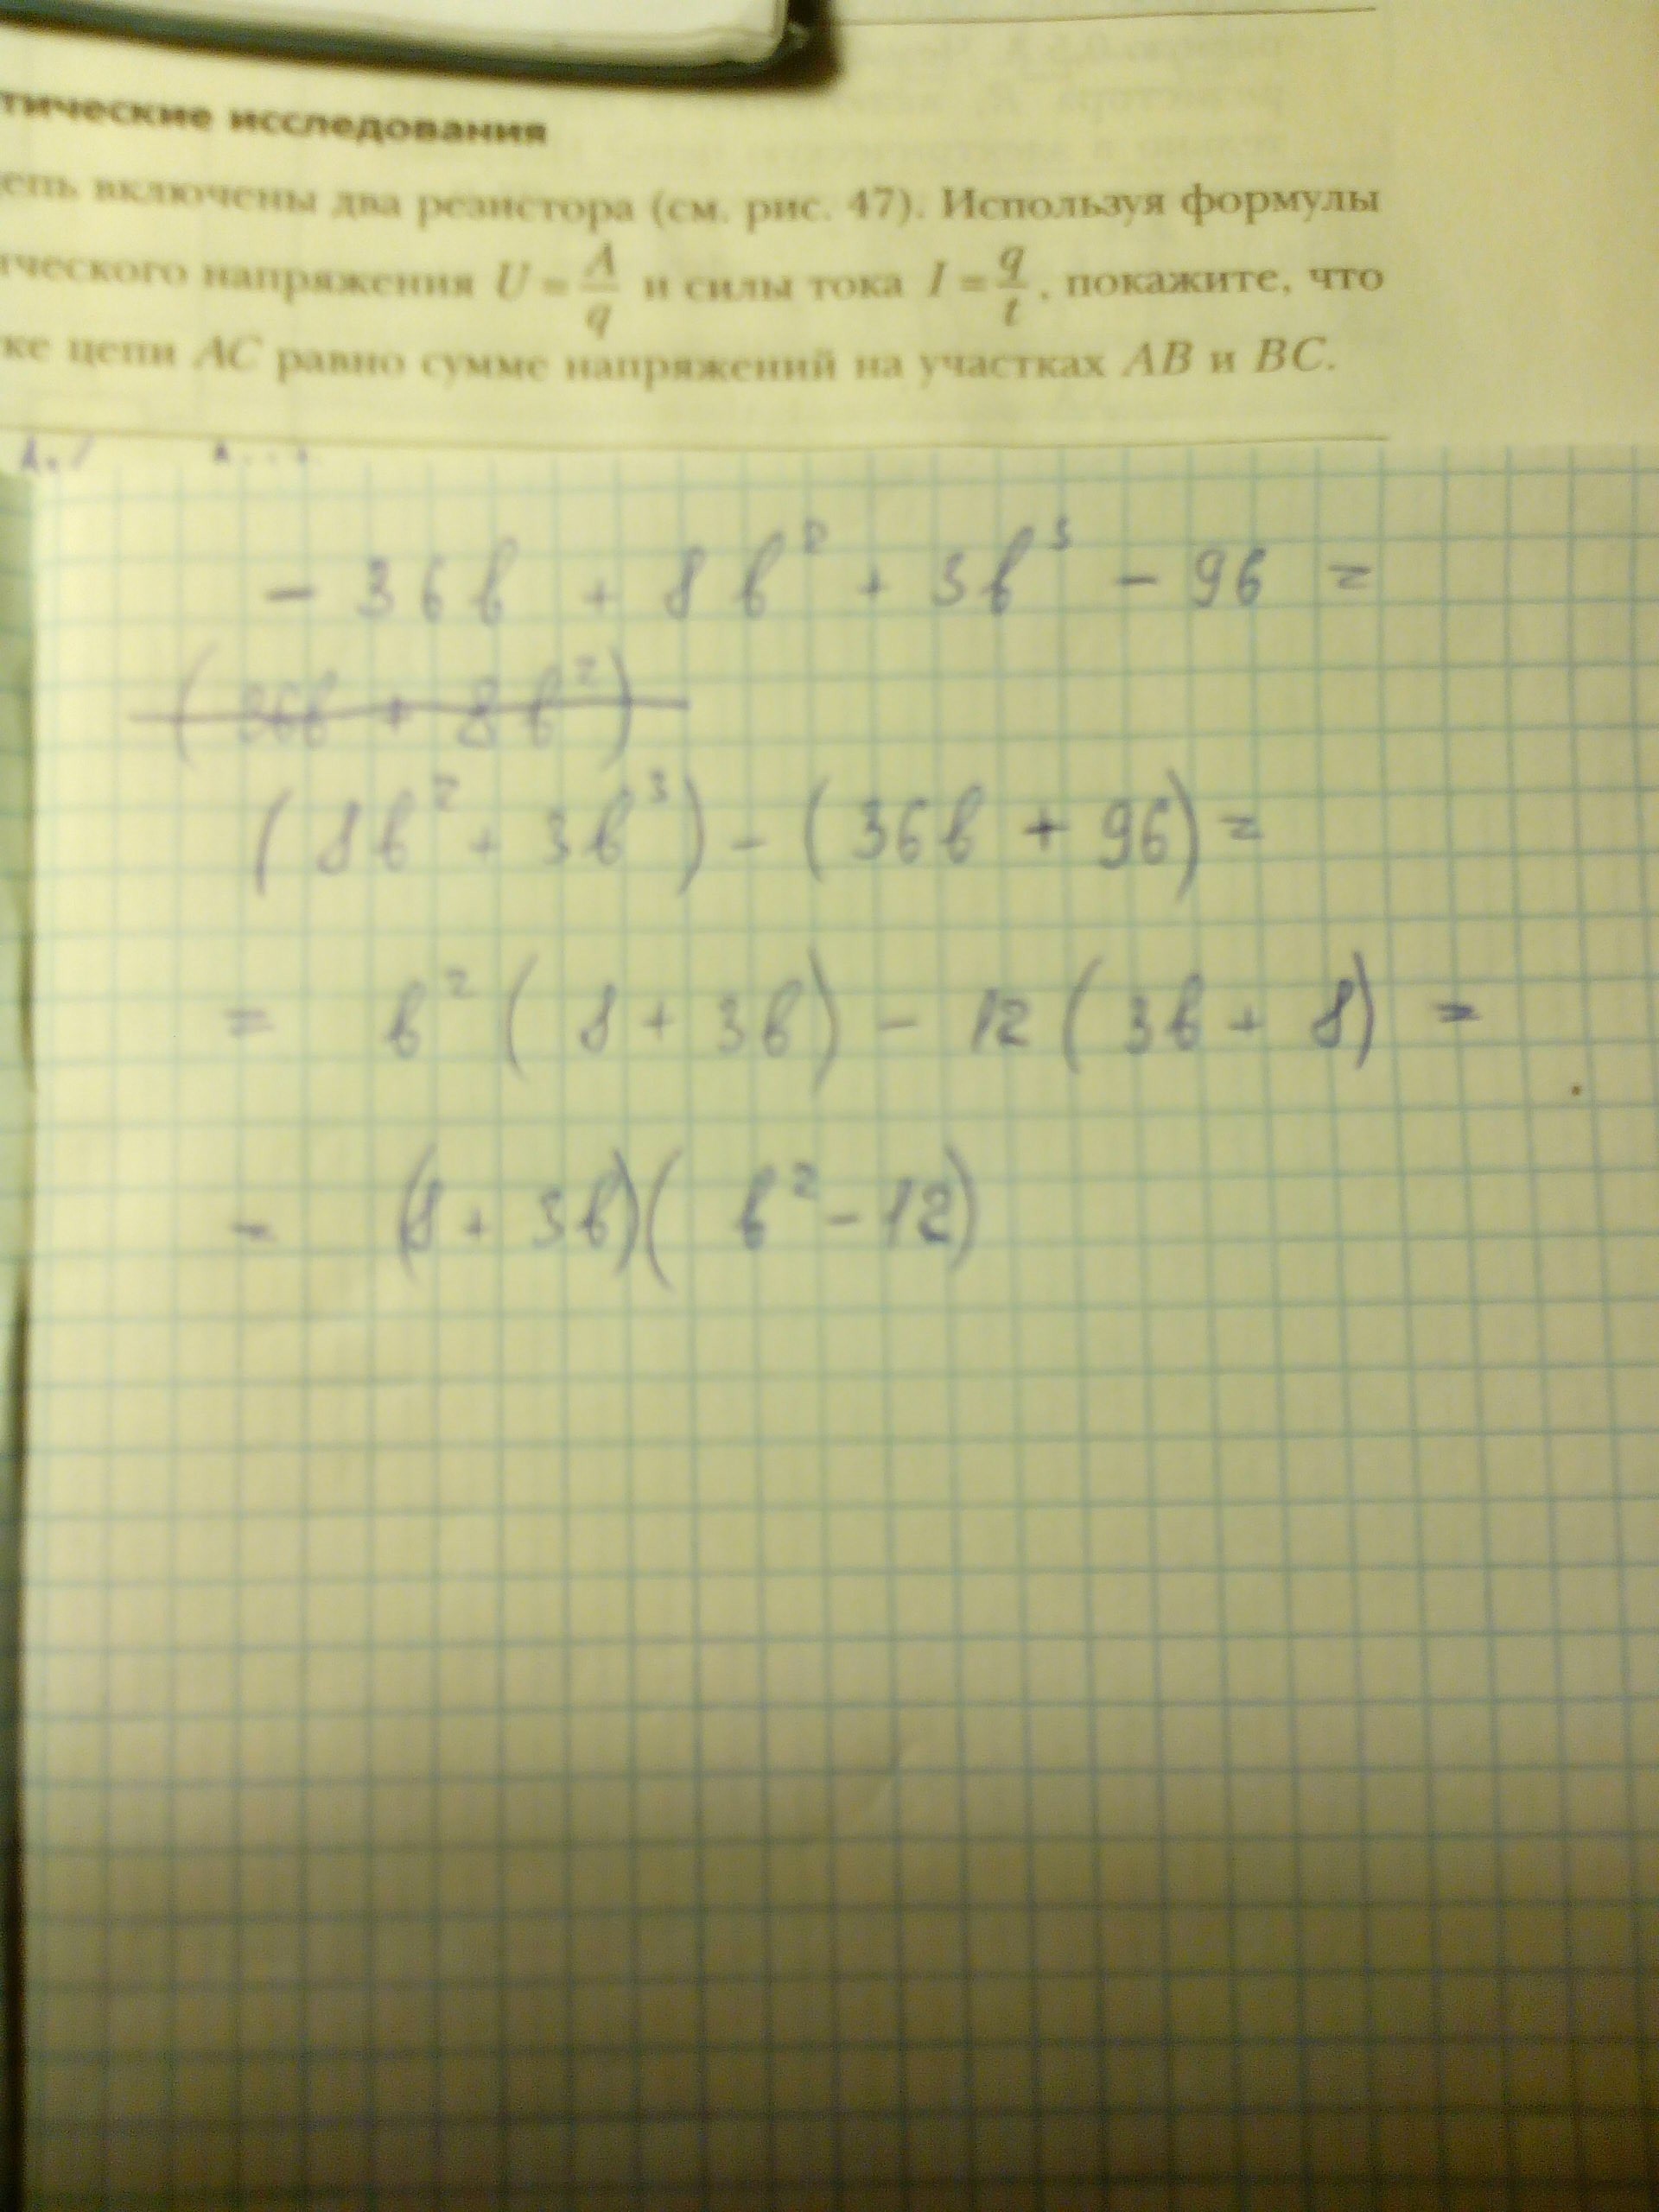 тические исследования
цепь включены два резистора (см. рис. 47). Используя формулы
ического напряжения U = A/q и силы тока I = q/t, покажите, что
ке цепи AC равно сумме напряжений на участках AB и BC.
- 36b + 8b² + 3b³ - 96 =
(36b + 8b²)
(8b² + 3b³) - (36b + 96) =
= b² (8 + 3b) - 12 (3b + 8) =
- (8 + 3b)(b² - 12)